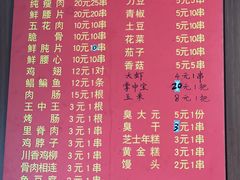 纯瘦肉 20元10串
鲜腰片 20元10串
五花肉 10元5串
脆骨 10元5串
鲜肫片 10元串
鲜腰心 10元串
鸡翅 12元1串
鲳鳊鱼 12元1串
肉肠 12元1串
王中王 3元1根
烤肠 3元1根
里脊肉 3元1串
鸡脖子 3元1串
川香鸡柳 3元1串
骨肉相连 3元1串
5元10串
青椒 5元10串
土豆 5元10串
花菜 5元10串
茄子 5元10串
香菇 5元10串
大虾 4元1串
掌中宝 20元1串
玉米 8元1把
臭大元 5元1份
臭干 3元1串
芝士年糕 3元1串
黄金糕 3元1串
馒头 2元1串